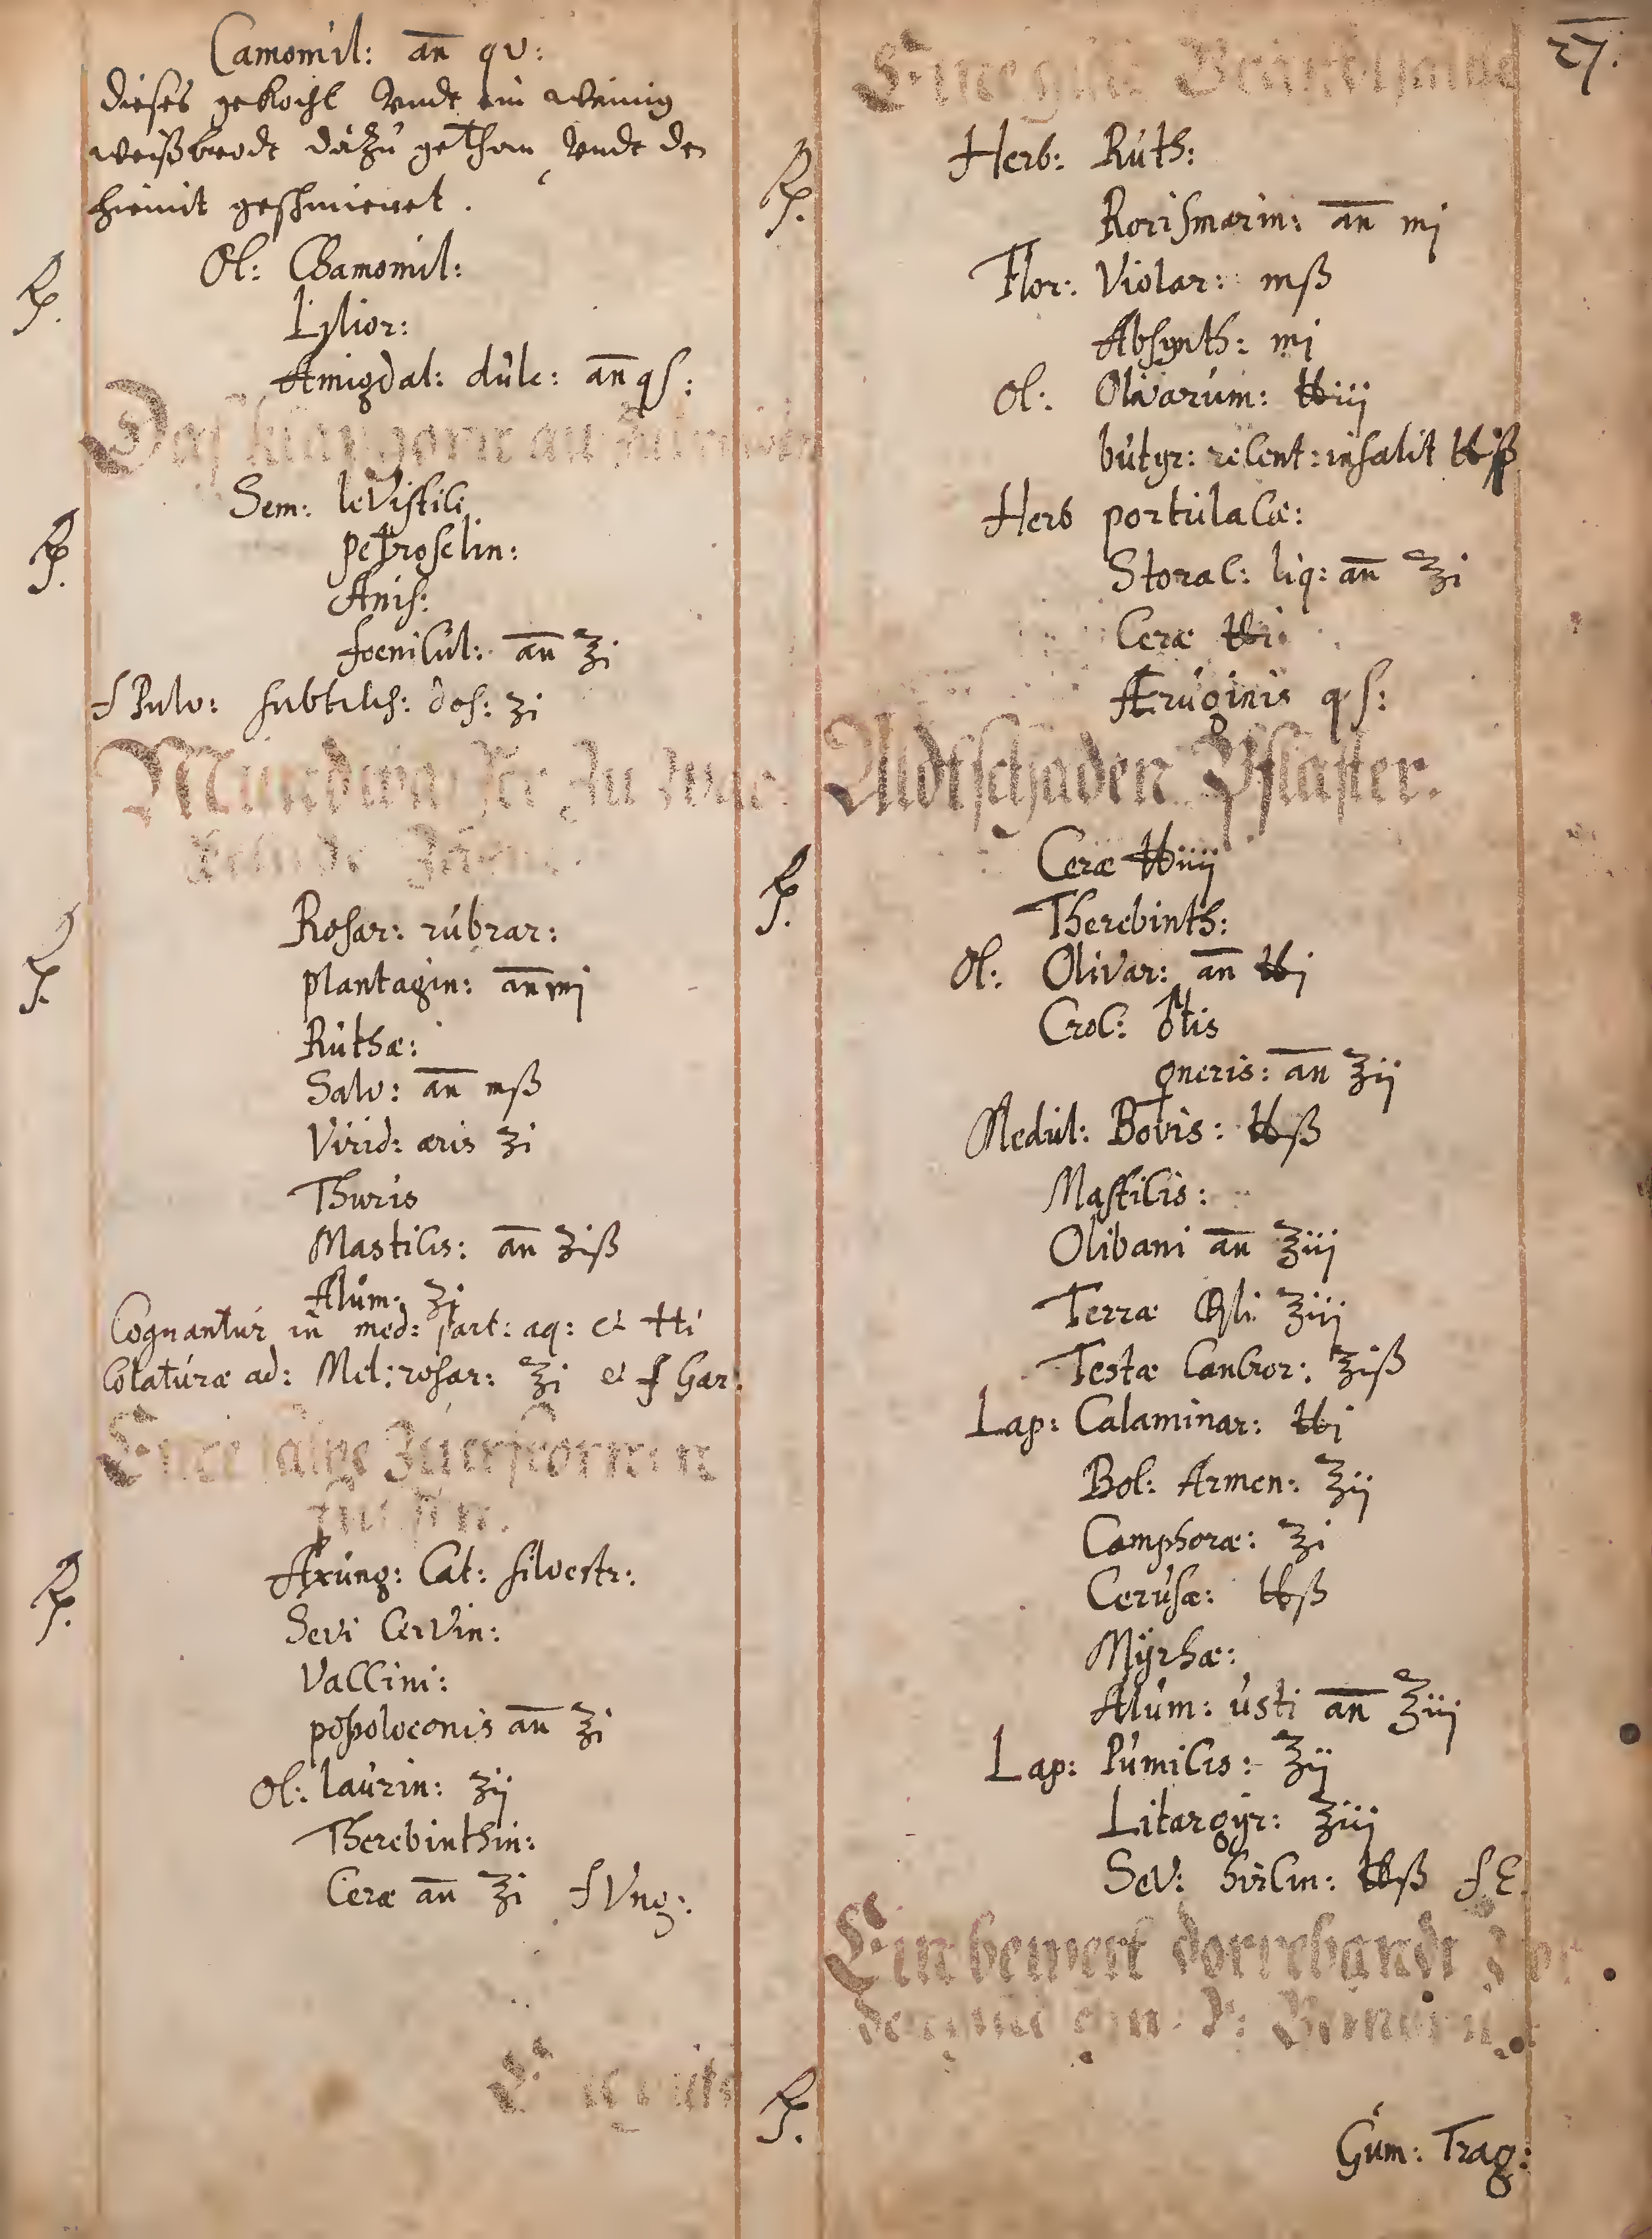 Camomil: an qv:
dieses gekocht vndt ein wenig
weißbrodt dazu gethan, vndt den
hiemit geschmieret.
Rp. Ol: Chamomil:
Lylior:
Amigdal: dulc: an qs:
Rp. Sem: leVistici
petroselin:
Anis:
foenicul: an ʒi
f Pulv: subtilis: dos: ʒi
Rp. Rosar: rubrar:
plantagin: an mj
Ruthæ:
Salv: an mß
Virid: æris ʒi
Thuris
Mastics: an ʒiß
Alum: ʒj
Coquantur in med: part: aq: et ℔i
Colaturæ ad: Mel: rosar: ℥i et f Gar:
Eine salbe Zuerfrornen
Rp. Axung: Cat: silvestr:
Sevi CerVin:
VaCCini:
an ℥i
Ol: laurin: ʒij
Therebinthin:
Ceræ an ℥i f Vng:
Eine gute
27.
Eine gute Brandtsalbe
Rp. Herb: Ruth:
Rorismarin: an mj
Flor: Violar: mß
Absynth: mj
Ol: Olivarum: ℔iij
butyr: recent: insalit ℔jß
Herb portulacæ:
Storac: liq: an ℥i
Ceræ ℔i
Æruginis qs:
Aldtschaden Pflaster.
Rp. Ceræ ℔iiij
Therebinth:
Ol: Olivar: an ℔j
Croc: ♂tis
♀neris: an ℥ij
Medul: Bovis: ℔ß
Mastics:
Olibani an ℥iij
Terræ ℥iij
Testæ Cancror: ℥iß
Lap: Calaminar: ℔j
Bol: Armen: ℥ij
Camphoræ: ℥i
Cerusæ: ℔ß
Myrhæ:
Alum: usti an ℥iij
Lap: Pumicis: ℥ij
Litargyr: ℥iij
Sev: hircin: ℔ß f E.
Ein bewert
Rp.
Gum: Trag: